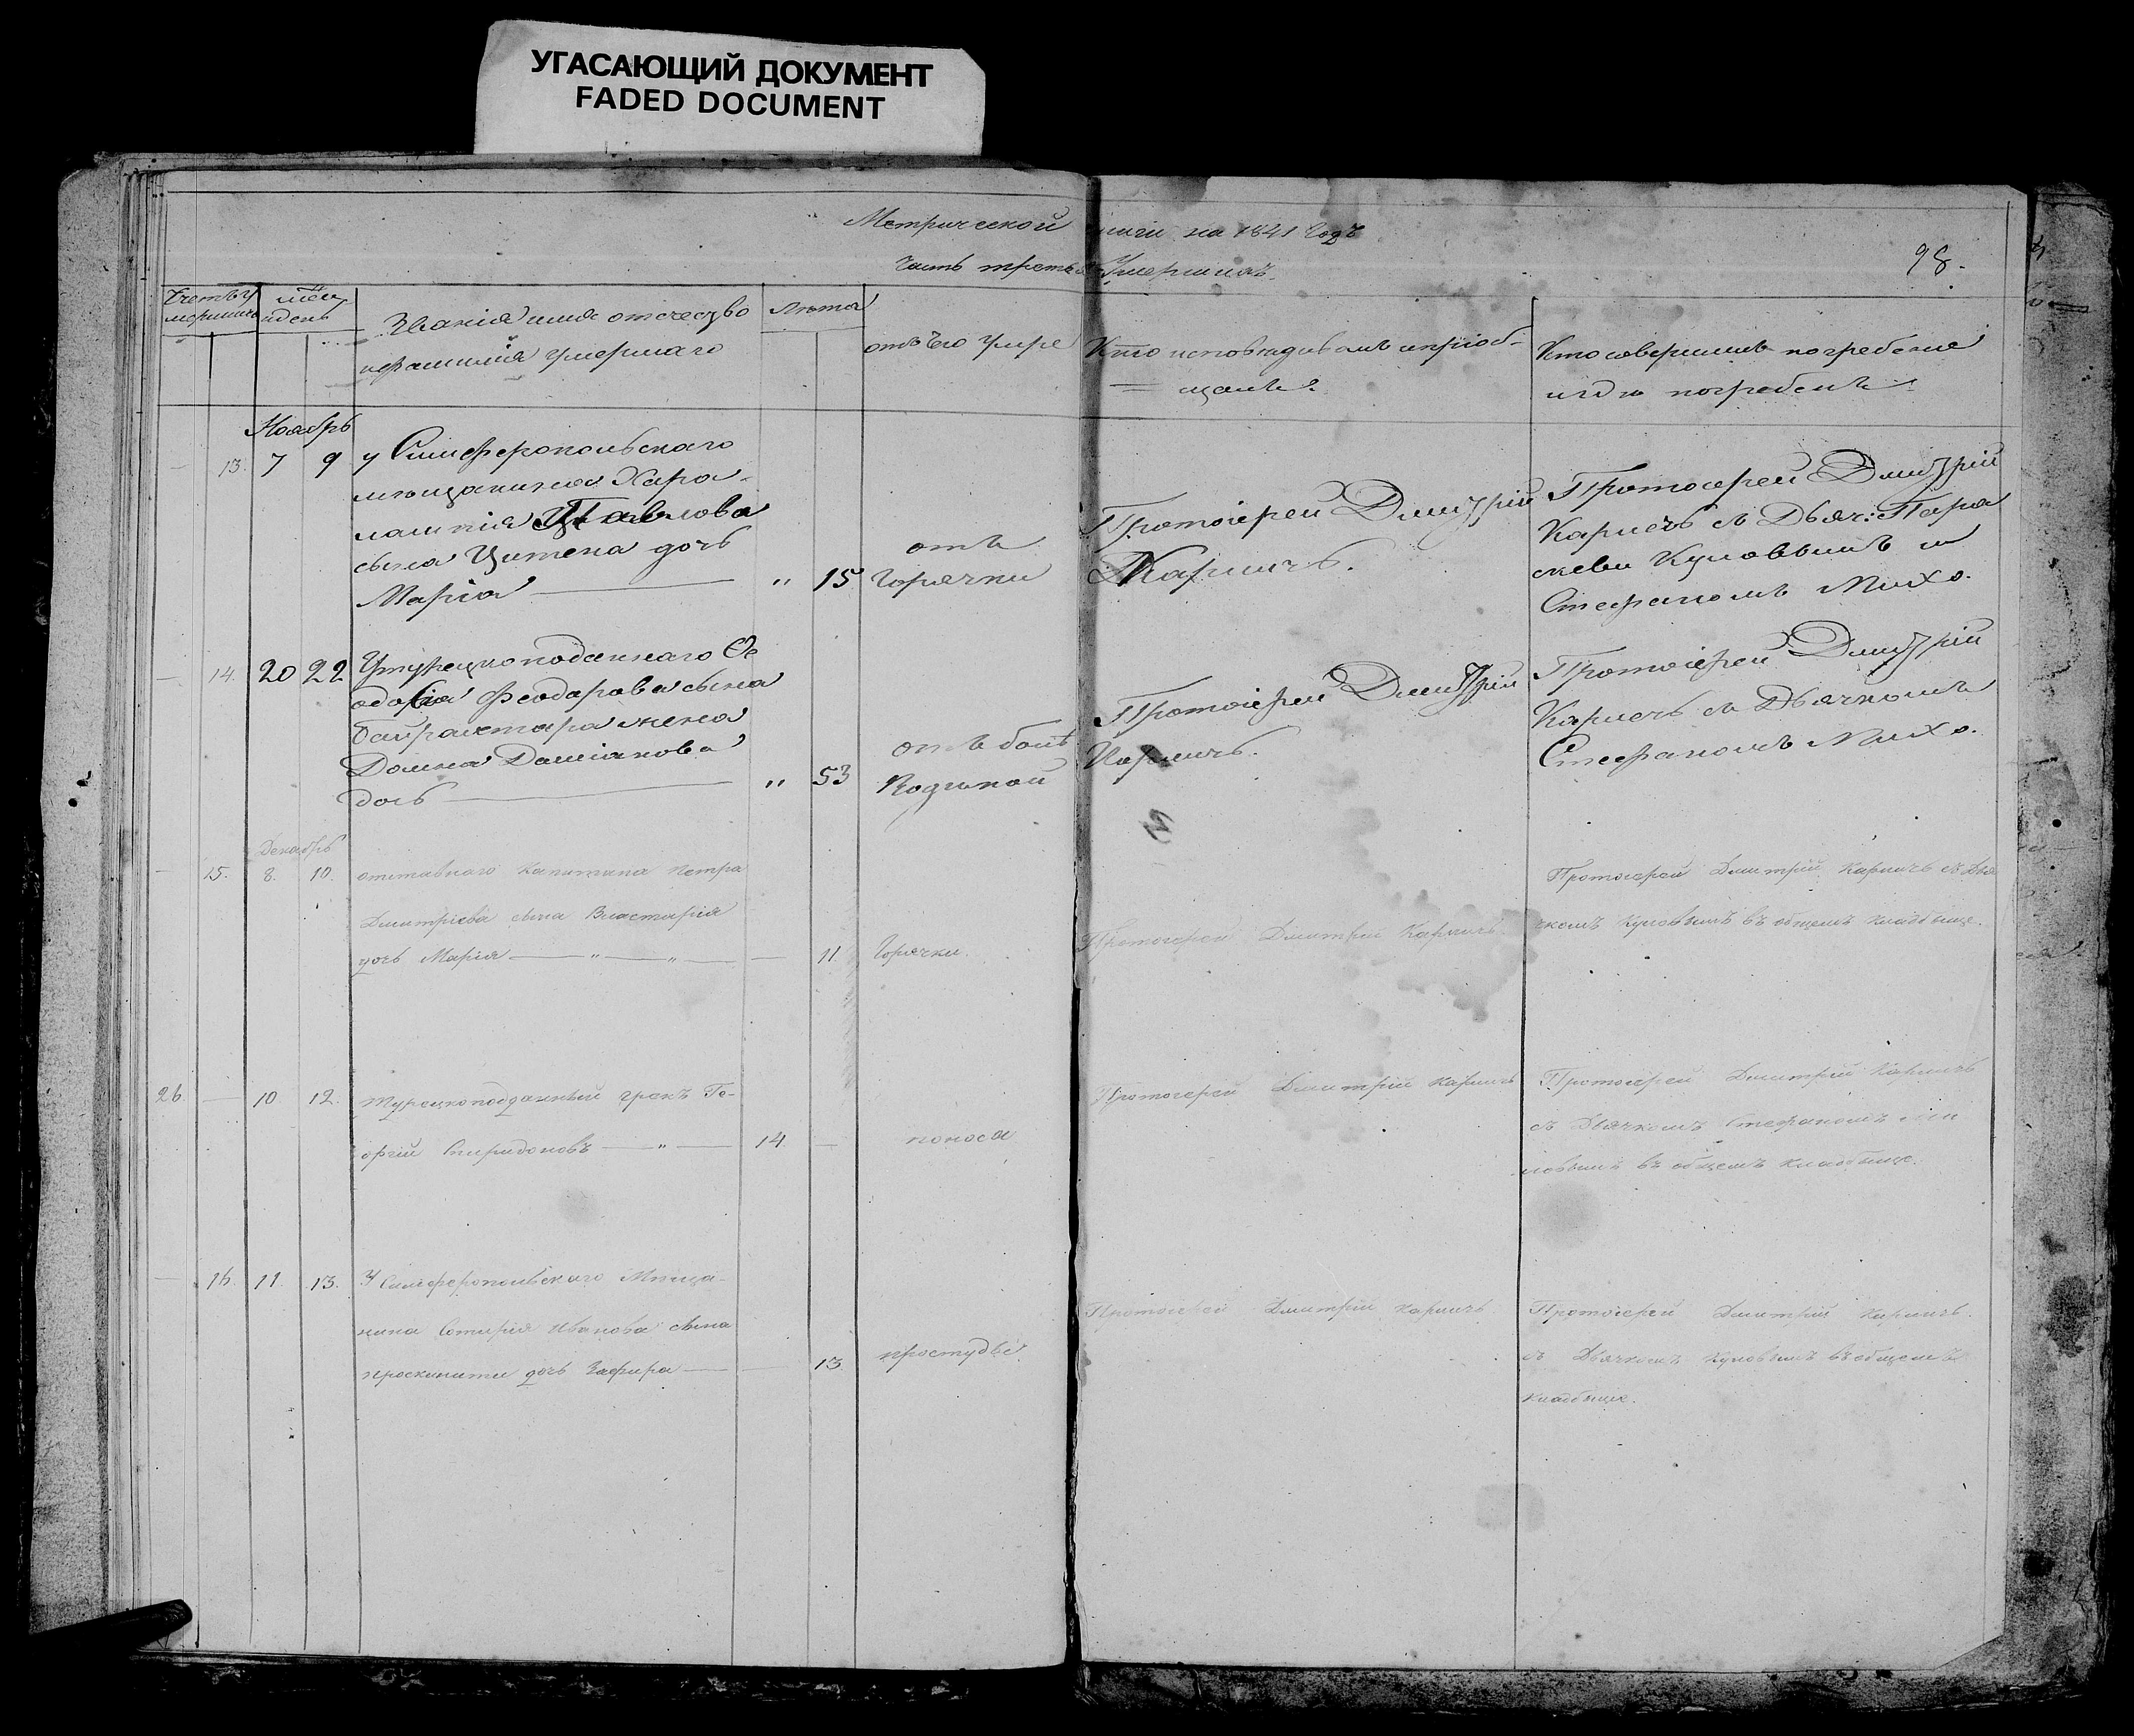 УГАСАЮЩИЙ ДОКУМЕНТ
FADED DOCUMENT
Метрической книги на 1841 годъ
Часть третья Умершихъ.
98.
Счетъ у
мершихъ
мѣс.
и день
Званіе имя отчество
и фамилія умершаго
Лѣта
отъ чего умре
Кто исповѣдывалъ и пріоб-
щалъ.
Кто совершилъ погребеніе
и гдѣ погребенъ.
Ноябрь
13. 7 9
у Симферопольскаго
мѣщанина Хара-
лампія Павлова
сына Цитена дочь
Марія
" 15
отъ
Горячки
Протоіерей Дмитрій
Карпичъ.
Протоіерей Дмитрій
Карпичъ съ Дьяч: Пара
скеви Куловымъ и
Стефаномъ Михо.
14. 20 22
У турецкоподаннаго Ѳе
одосія Феодорова сына
Байрактара жена
Домна Даміанова
дочь
" 53
отъ боли
Водяной
Протоіерей Дмитрій
Карпичъ.
Протоіерей Дмитрій
Карпичъ съ Дьячкомъ
Стефаномъ Михо.
Декабрь
15. 8. 10.
отставнаго Капитана Петра
Дмитріева сына Властарія
дочь Марія
11
Горячки.
Протоіерей Дмитрій Карпичъ.
Протоіерей Дмитрій Карпичъ съ Дья
чкомъ Куловымъ въ общемъ кладбище.
26. 10 12.
Турецкоподданный грекъ Ге-
оргій Спиридоновъ
14
поноса
Протоіерей Дмитрій Карпичъ
Протоіерей Дмитрій Карпичъ
съ Дьячкомъ Стефаномъ
въ общемъ кладбище.
16. 11. 13.
У Симферопольскаго Мѣща-
нина Сотирія Иванова сына
Проскинити дочь Зафира
13
простуды.
Протоіерей Дмитрій Карпичъ.
Протоіерей Дмитрій Карпичъ.
съ Дьячкомъ Куловымъ въ общемъ
кладбище.